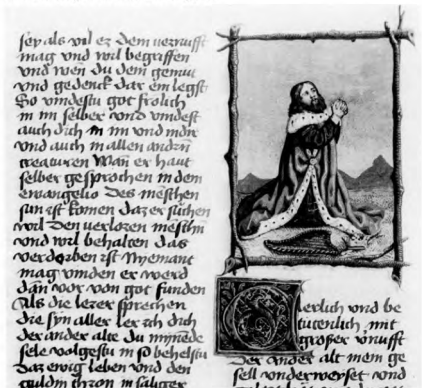 sey als vil ez dem vernufft
mag vnd wil begriffen
vnd wen du dein gemut
vnd gedenck dar ein legst
So vindestu got frolich
in im selber vnd vindest
auch dich in im vnd in dir
vnd auch in allen andrn
creaturen Wan er haut
selber gesprochen in dem
ewangelio Des menschen
sun ist komen daz er suchen
woll den verloren menschn
vnd wil behalten das
verdorben ist Nyemant
mag vinden er werd
dan vor von got funden
Als die lerer sprechen
die syn aller ler ich dich
der ander alte du mynende
sele volgestu in so behelstu
daz ewig leben vnd den
guldin thron in saliger
Clerlich vnd be
tutenlich mit
großer vnufft
Der ander alt mein ge
sell vnderweyset vnd